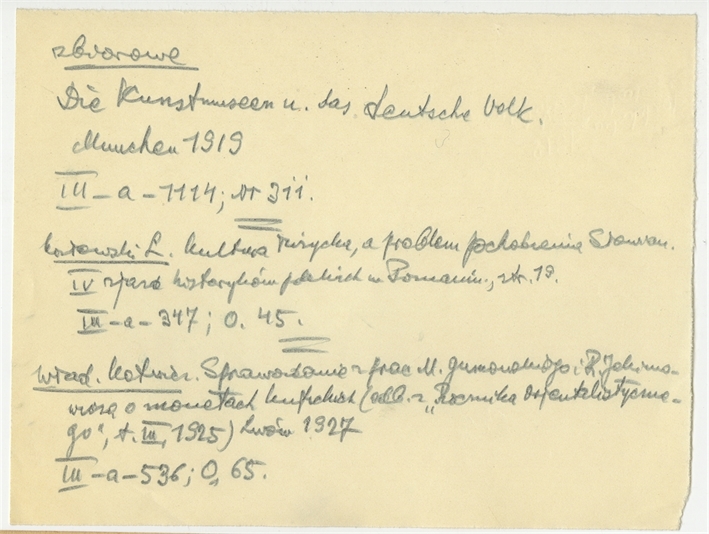 zbiorowe
Die Kunstmuseen u. das deutsche Volk.
Munchen 1919
III-a-1114; nr 311.
Kozłowski L. Kultura łużycka, a problem pochodzenia Słowian.
IV zjazd historyków polskich w Poznaniu, str. 19.
III-a-347; O. 45.
Wład. Kotwicz. Sprawozdanie z prac M. Gumowskiego i R. Jakimo-
wicza o monetach kufickich (odb. z "Rocznika Orientalistyczne-
go", t. III, 1925) Lwów 1927
III-a-536; O, 65.